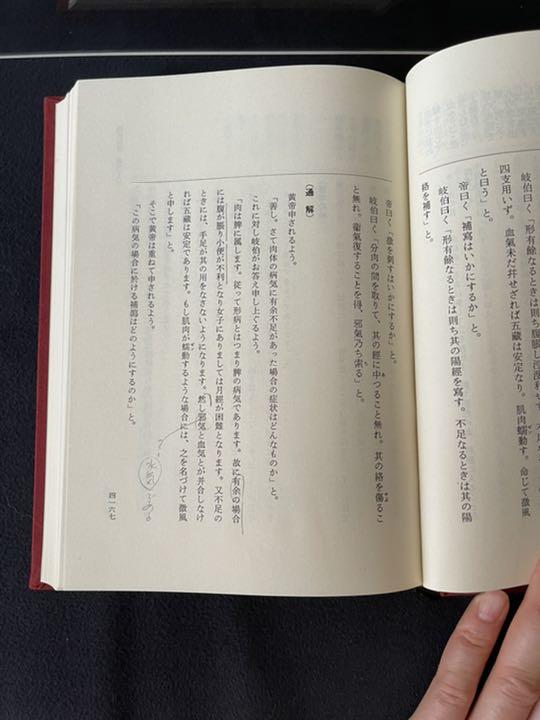 岐伯曰く「形有餘なるときは則ち腹脹し
四支用いず。血氣未だ幷せざれば五蔵は安定なり。肌肉蠕動す。命じて微風
と曰う」と。
帝曰く「補寫はいかにするか」と。
岐伯曰く「形有餘なるときは則ち其の陽經を寫す。不足なるときは其の陽
絡を補す」と。
帝曰く「微を刺すはいかにするか」と。
岐伯曰く「分肉の間を取りて、其の經に中つること無れ。其の絡を傷るこ
と無れ。衞氣復することを得、邪氣乃ち索る」と。
(通解)
黄帝申されるよう。
「善し。さて肉体の病気に有余不足があった場合の症状はどんなものか」と。
これに対し岐伯がお答え申し上ぐるよう。
「肉は脾に属します。従って形病とはつまり脾の病気であります。故に有余の場合
には腹が脹り小便が不利となり女子にありましては月經が困難となります。又不足の
ときには、手足が其の用をなさないようになります。然し邪気と血気とが并合しなけ
れば五蔵は安定であります。もし肌肉が蠕動するような場合には、之を名づけて微風
と申します」と。
そこで黄帝は重ねて申されるよう。
「この病気の場合に於ける補瀉はどのようにするのか」と。
四一六七